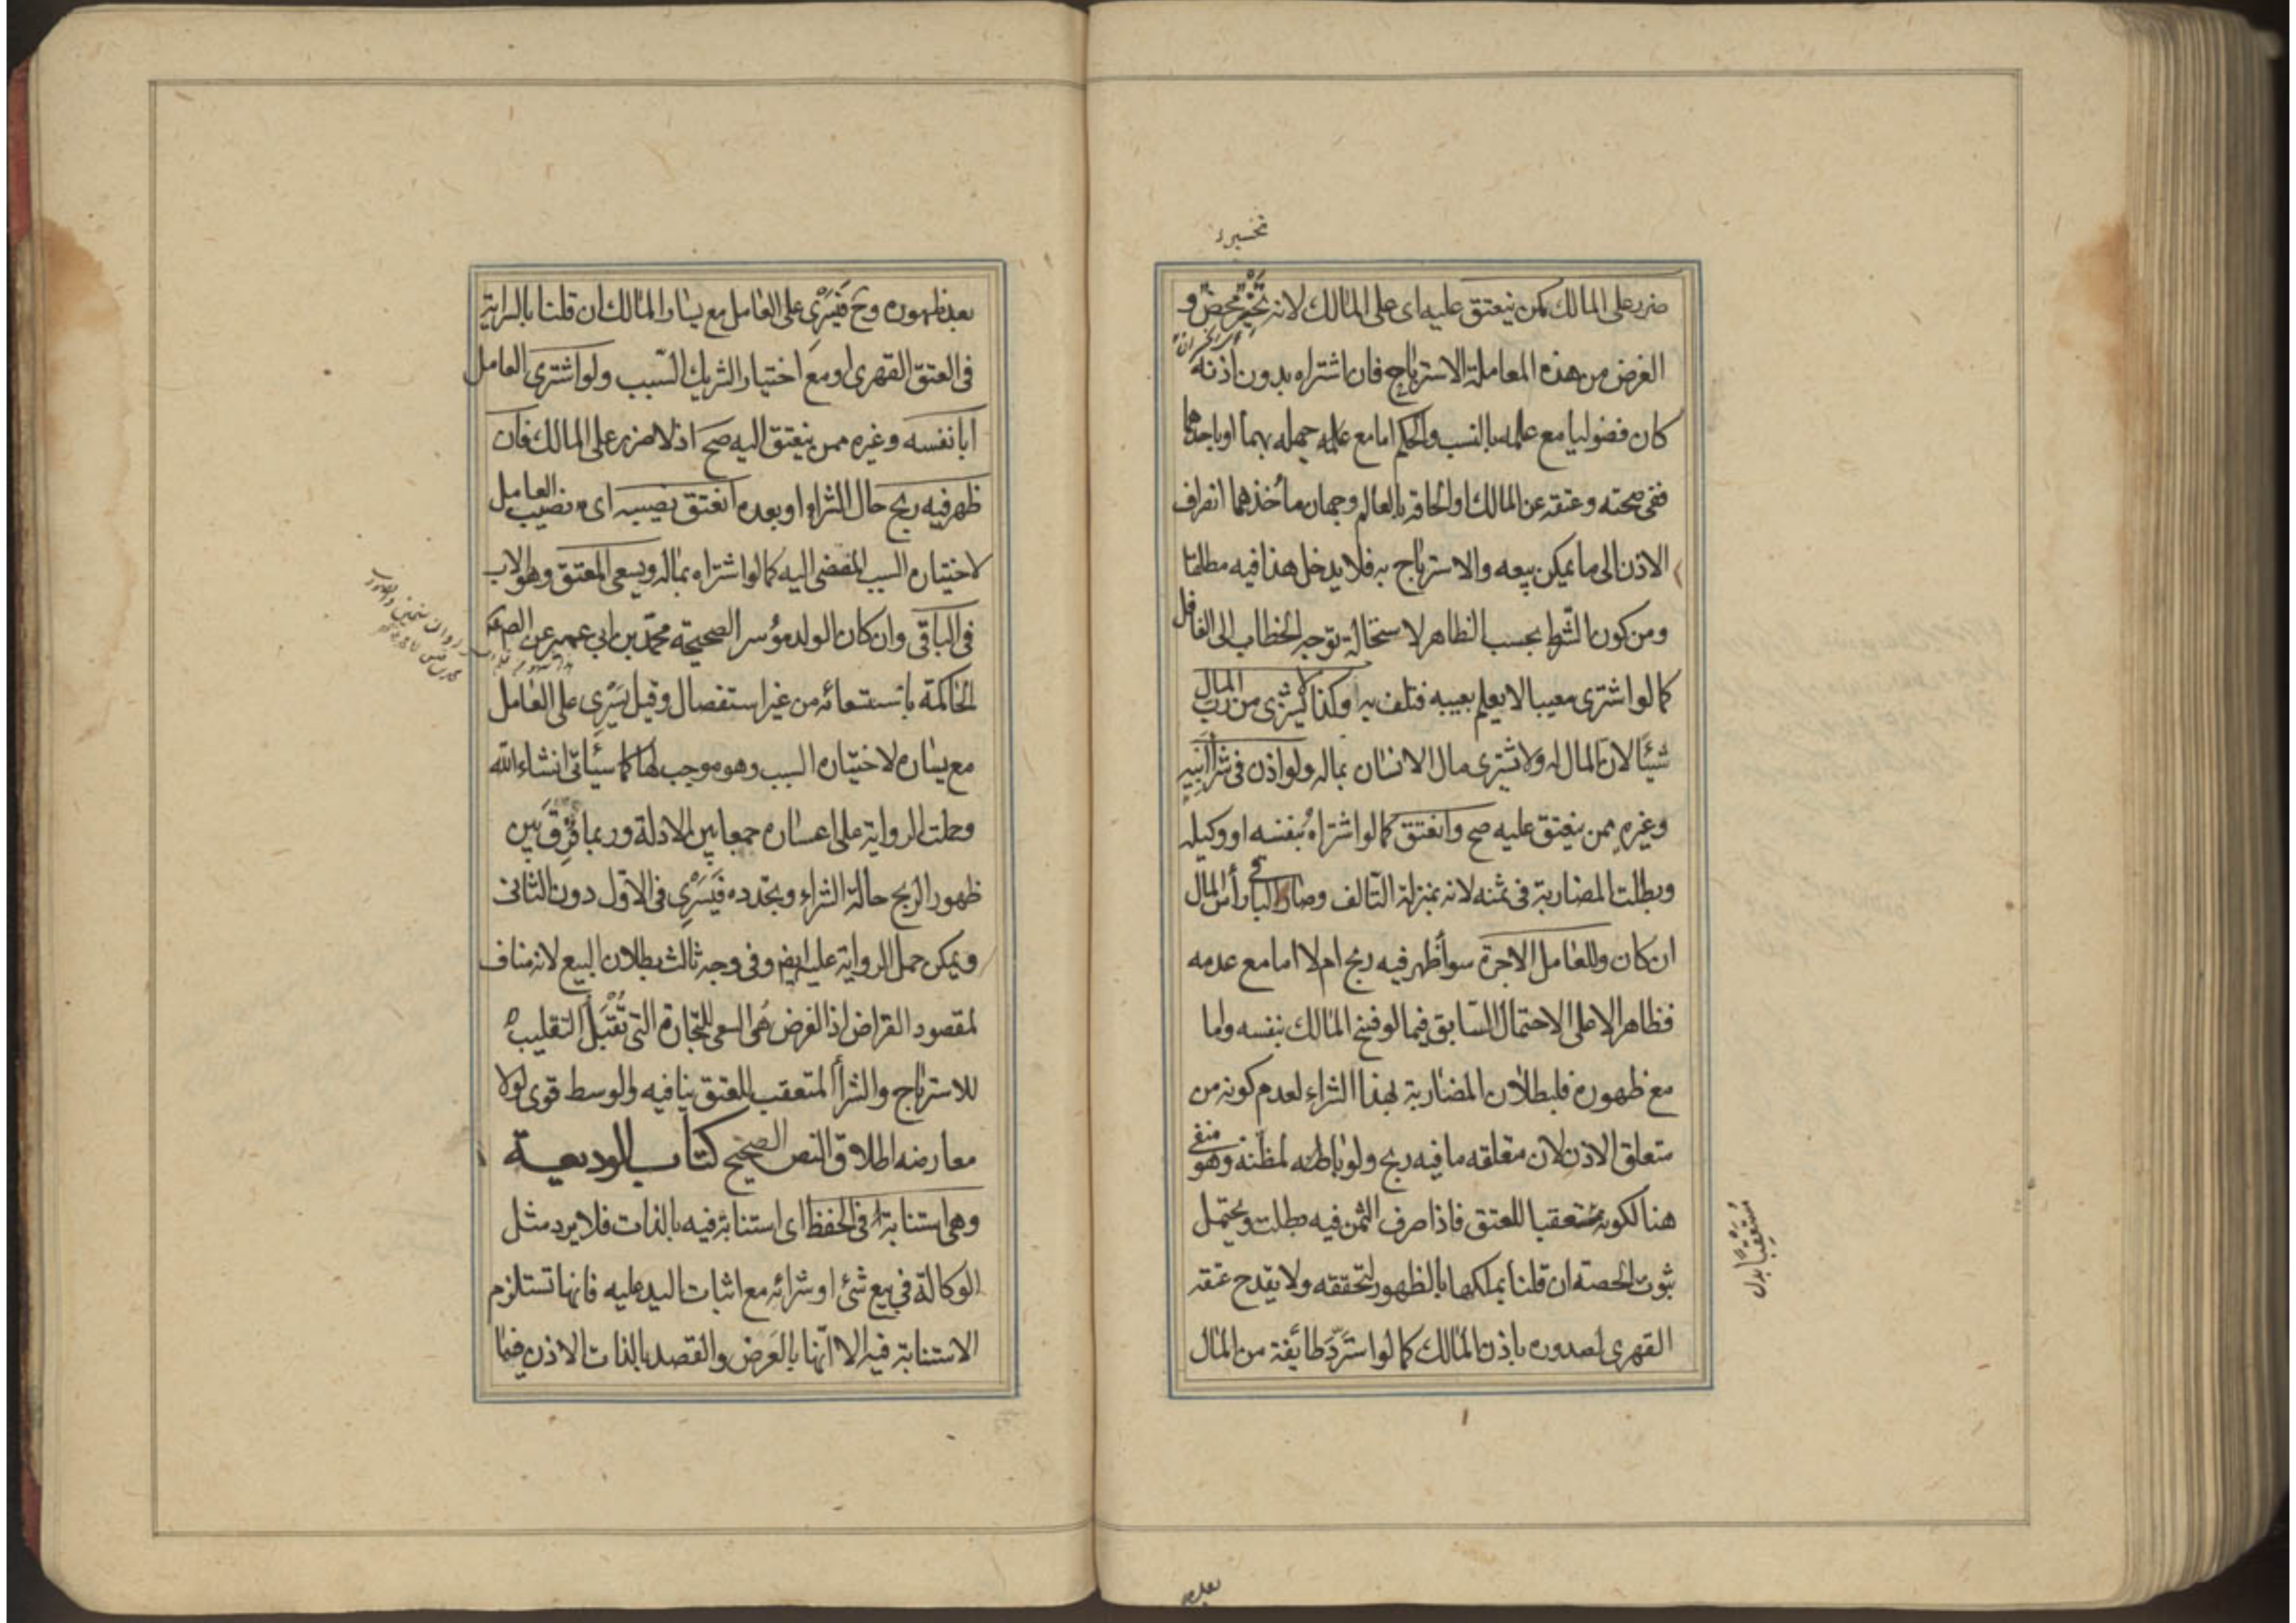 تخسیر
ضرر على المالك كمن ينعتق عليه اى على المالك لانه تخيير محض و
الغرض من هذه المعاملة الاسترباح فان اشتراه بدون اذنه
كان فضوليا مع علمه بالنسب والحكم اما مع جهله بهما او باحدهما
ففى صحته وعتقه عن المالك او الحاقه بالعالم وجهان مأخذهما انصراف
الاذن الى ما يمكن بيعه والاسترباح به فلا يدخل هذا فيه مطلقا
ومن كون الشرط بحسب الظاهر لاستحالة توجه الخطاب الى الغافل
كما لو اشترى معيبا لا يعلم بعيبه فتلف به وكذا لا يشترى من رب المال
شيئا لان المال له ولا يشترى مال الانسان بماله ولو اذن فى شراء ابيه
وغيره ممن ينعتق عليه صح وانعتق كما لو اشتراه بنفسه او وكيله
وبطلت المضاربة فى ثمنه لانه بمنزلة التالف وصار الباقى رأس المال
ان كان وللعامل الاجرة سواء ظهر فيه ربح ام لا اما مع عدمه
فظاهر الا على الاحتمال السابق فيما لو فسخ المالك بنفسه واما
مع ظهوره فلبطلان المضاربة بهذا الشراء لعدم كونه من
متعلق الاذن لان متعلقه ما فيه ربح ولو بالمظنة وهو منفى
هنا لكونه مستعقبا للعتق فاذا صرف الثمن فيه بطلت ويحتمل
ثبوت الحصة ان قلنا بملكها بالظهور لتحققه ولا يقدح عتقه
القهرى لصدوره باذن المالك كما لو استرد طائفة من المال
مُسْتَعْقِبًا بدل
بعد
بعد ظهوره وح فيسرى على العامل مع يسار المالك ان قلنا بالسراية
فى العتق القهرى او مع اختيار الشريك السبب ولو اشترى العامل
ابا نفسه وغيره ممن ينعتق اليه صح اذ لا ضرر على المالك فان
ظهر فيه ربح حال الشراء او بعده انعتق نصيبه اى نصيب العامل
لاختياره السبب المفضى اليه كما لو اشتراه بماله ويسعى المعتق وهو الاب
فى الباقى وان كان الولد موسرا لصحيحة محمد بن ابى عمير عن الصم
الحاكمة باستسعائه من غير استفصال وقيل يسرى على العامل
مع يساره لاختياره السبب وهو موجب لها كما سيأتى انشاء الله
وحملت الرواية على اعساره جمعا بين الادلة وربما فرق بين
ظهور الربح حالة الشراء وتجدده فيسرى فى الاول دون الثانى
ويمكن حمل الرواية عليه ايضا وفى وجه ثالث بطلان البيع لانه مناف
لمقصود القراض اذ الغرض هى السعى للتجارة التى تقبل التقليب
للاسترباح والشراء المتعقب للعتق ينافيه والوسط قوى لولا
معارضه اطلاق النص الصحيح كتاب الوديعة
وهى استنابة فى الحفظ اى استنابة فيه بالذات فلا يرد مثل
الوكالة فى بيع شئ او شرائه مع اثبات اليد عليه فانها تستلزم
الاستنابة فيه الا انها بالعرض والقصد بالذات الاذن فيما